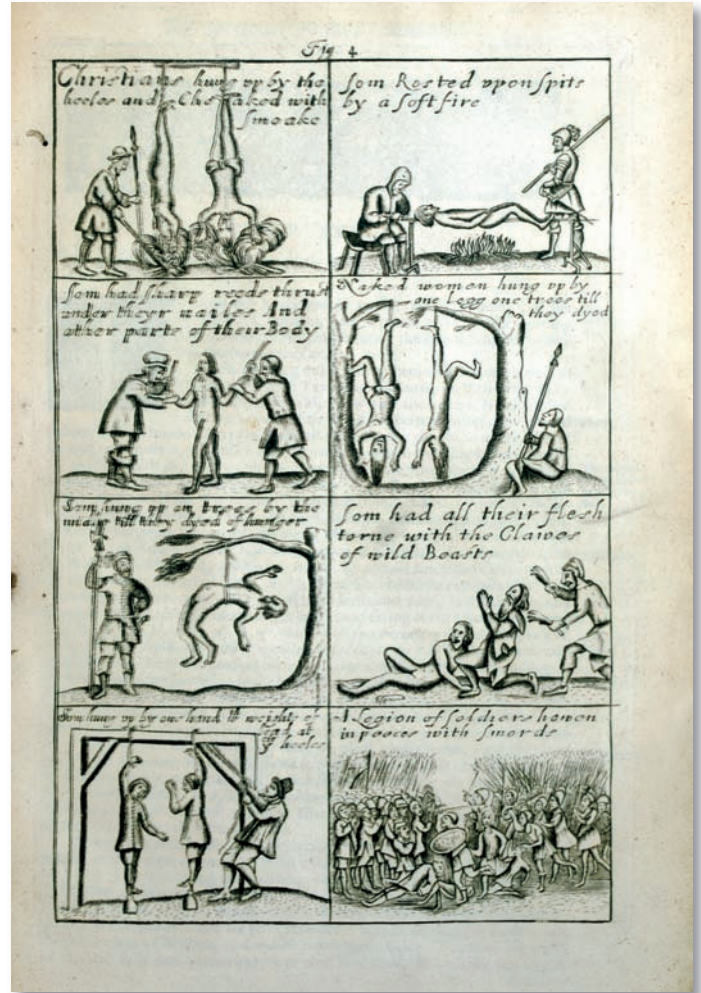 Fig 4
Christians hung up by the
heeles and Choaked with
Smoake
Som Rosted upon spits
by a soft fire
Som had sharp reeds thrust
under theyr nailes And
other parts of their Body
Naked women hung up by
one legg one trees till
they dyed
Som hung up on trees by the
till they dyed of hunger
Som had all their flesh
torne with the Clawes
of wild Beasts
Som hung up by one hand weights of
at
heeles
A Legion of soldiors hewen
in peeces with swords